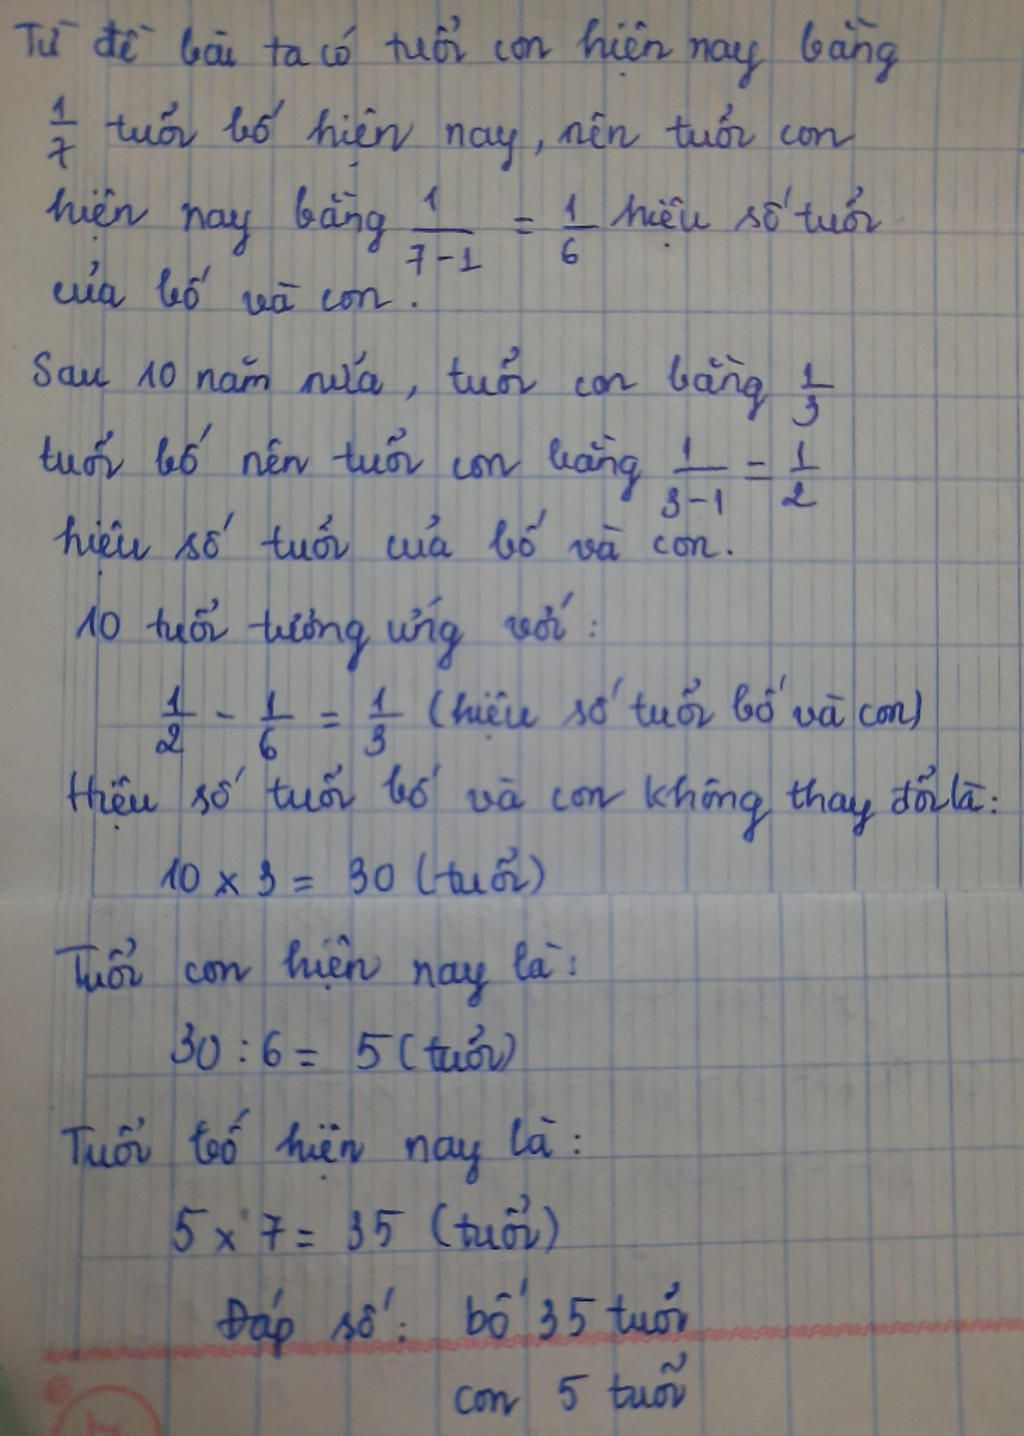 Từ đề bài ta có tuổi con hiện nay bằng
1/7 tuổi bố hiện nay, nên tuổi con
hiện nay bằng 1/(7-1) = 1/6 hiệu số tuổi
của bố và con.
Sau 10 năm nữa, tuổi con bằng 1/3
tuổi bố nên tuổi con bằng 1/(3-1) = 1/2
hiệu số tuổi của bố và con.
10 tuổi tương ứng với:
1/2 - 1/6 = 1/3 (hiệu số tuổi bố và con)
Hiệu số tuổi bố và con không thay đổi là:
10 x 3 = 30 (tuổi)
Tuổi con hiện nay là:
30 : 6 = 5 (tuổi)
Tuổi bố hiện nay là:
5 x 7 = 35 (tuổi)
Đáp số: bố 35 tuổi
con 5 tuổi